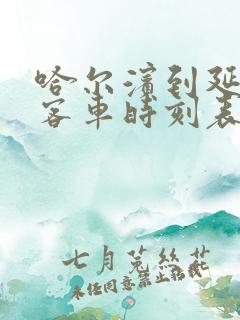 哈尔滨到延
客车时刻表
七月菟丝花
未经同意禁止转载